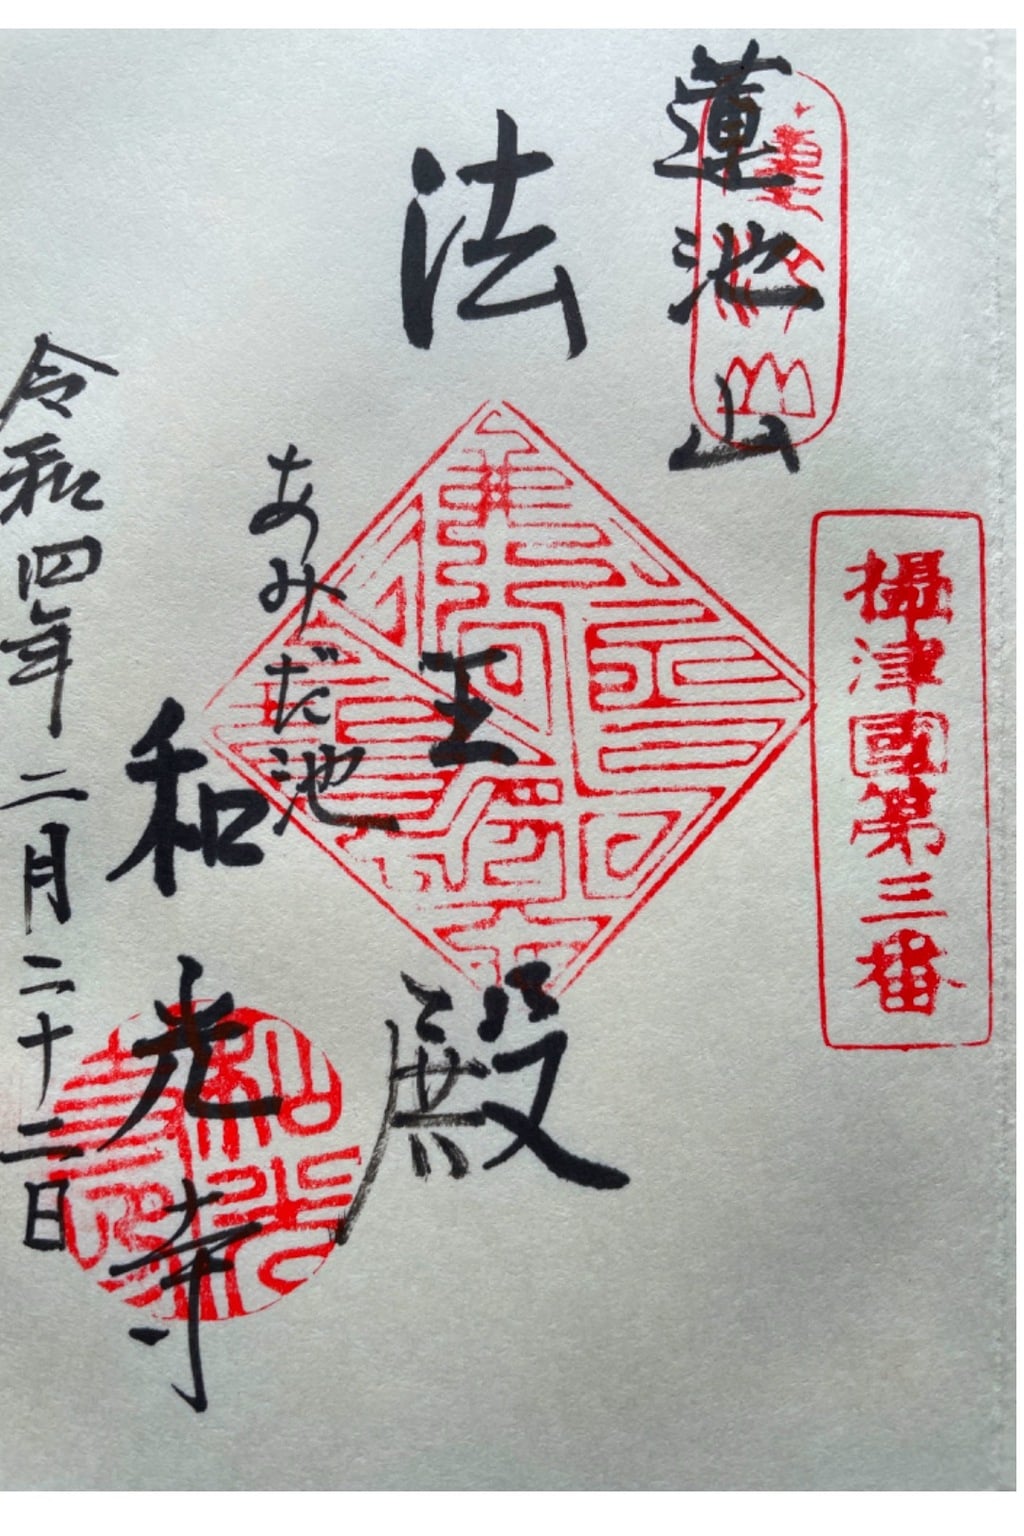 蓮池山
攝津國第三番
法王殿
あみだ池
和光寺
令和四年二月二十二日